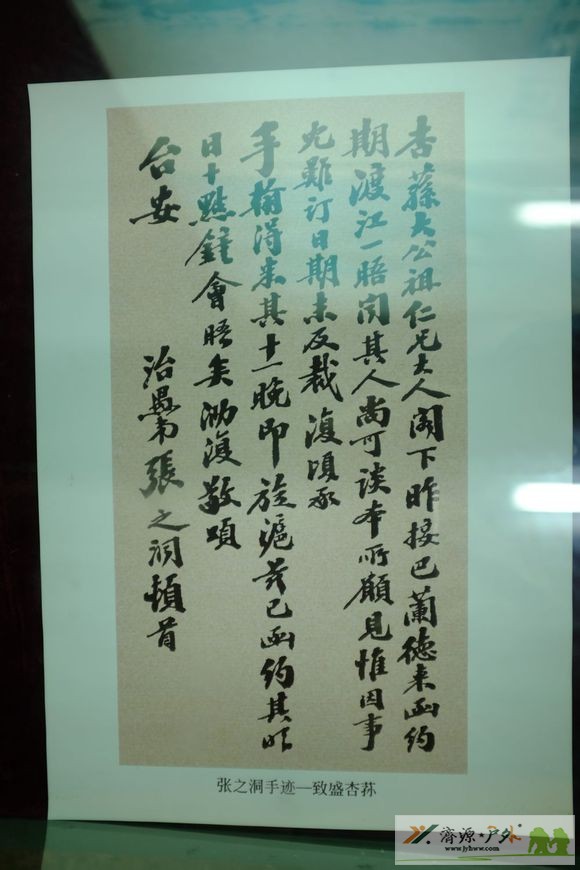 杏蓀大公祖仁兄大人閣下昨接巴蘭德来函约
期渡江一晤闻其人尚可谈本所願見惟因事
冗難订日期未及裁復頃承
手翰得来其十一晚即旋滬茲已函约其明
日十點鐘會晤矣泐復敬頌
台安
治愚弟張之洞頓首
张之洞手迹—致盛杏荪
济源★户外
www.jyhww.com